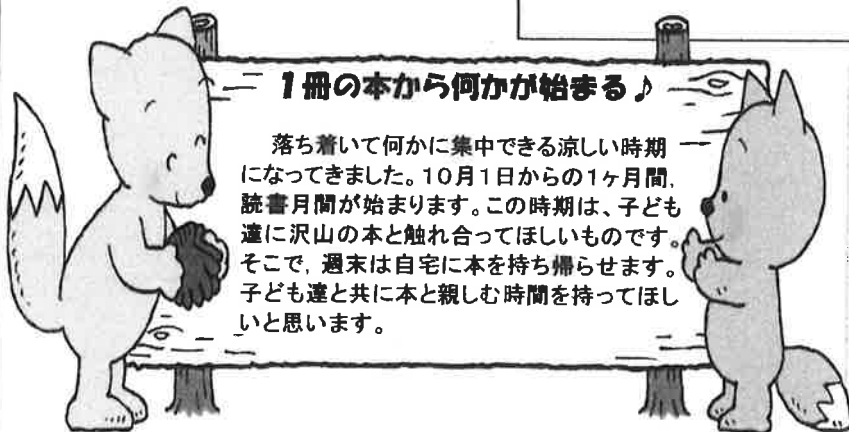 1冊の本から何かが始まる♪
落ち着いて何かに集中できる涼しい時期
になってきました。10月1日からの1ヶ月間,
読書月間が始まります。この時期は、子ども
達に沢山の本と触れ合ってほしいものです。
そこで, 週末は自宅に本を持ち帰らせます。
子ども達と共に本と親しむ時間を持ってほし
いと思います。